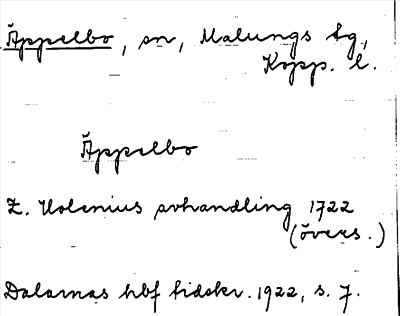 Äppelbo, sn, Malungs tg,
Kopp. l.
Äppelbo
Z. Holenius avhandling 1722
(övers.)
Dalarnas hbf tidskr. 1922, s. 7.